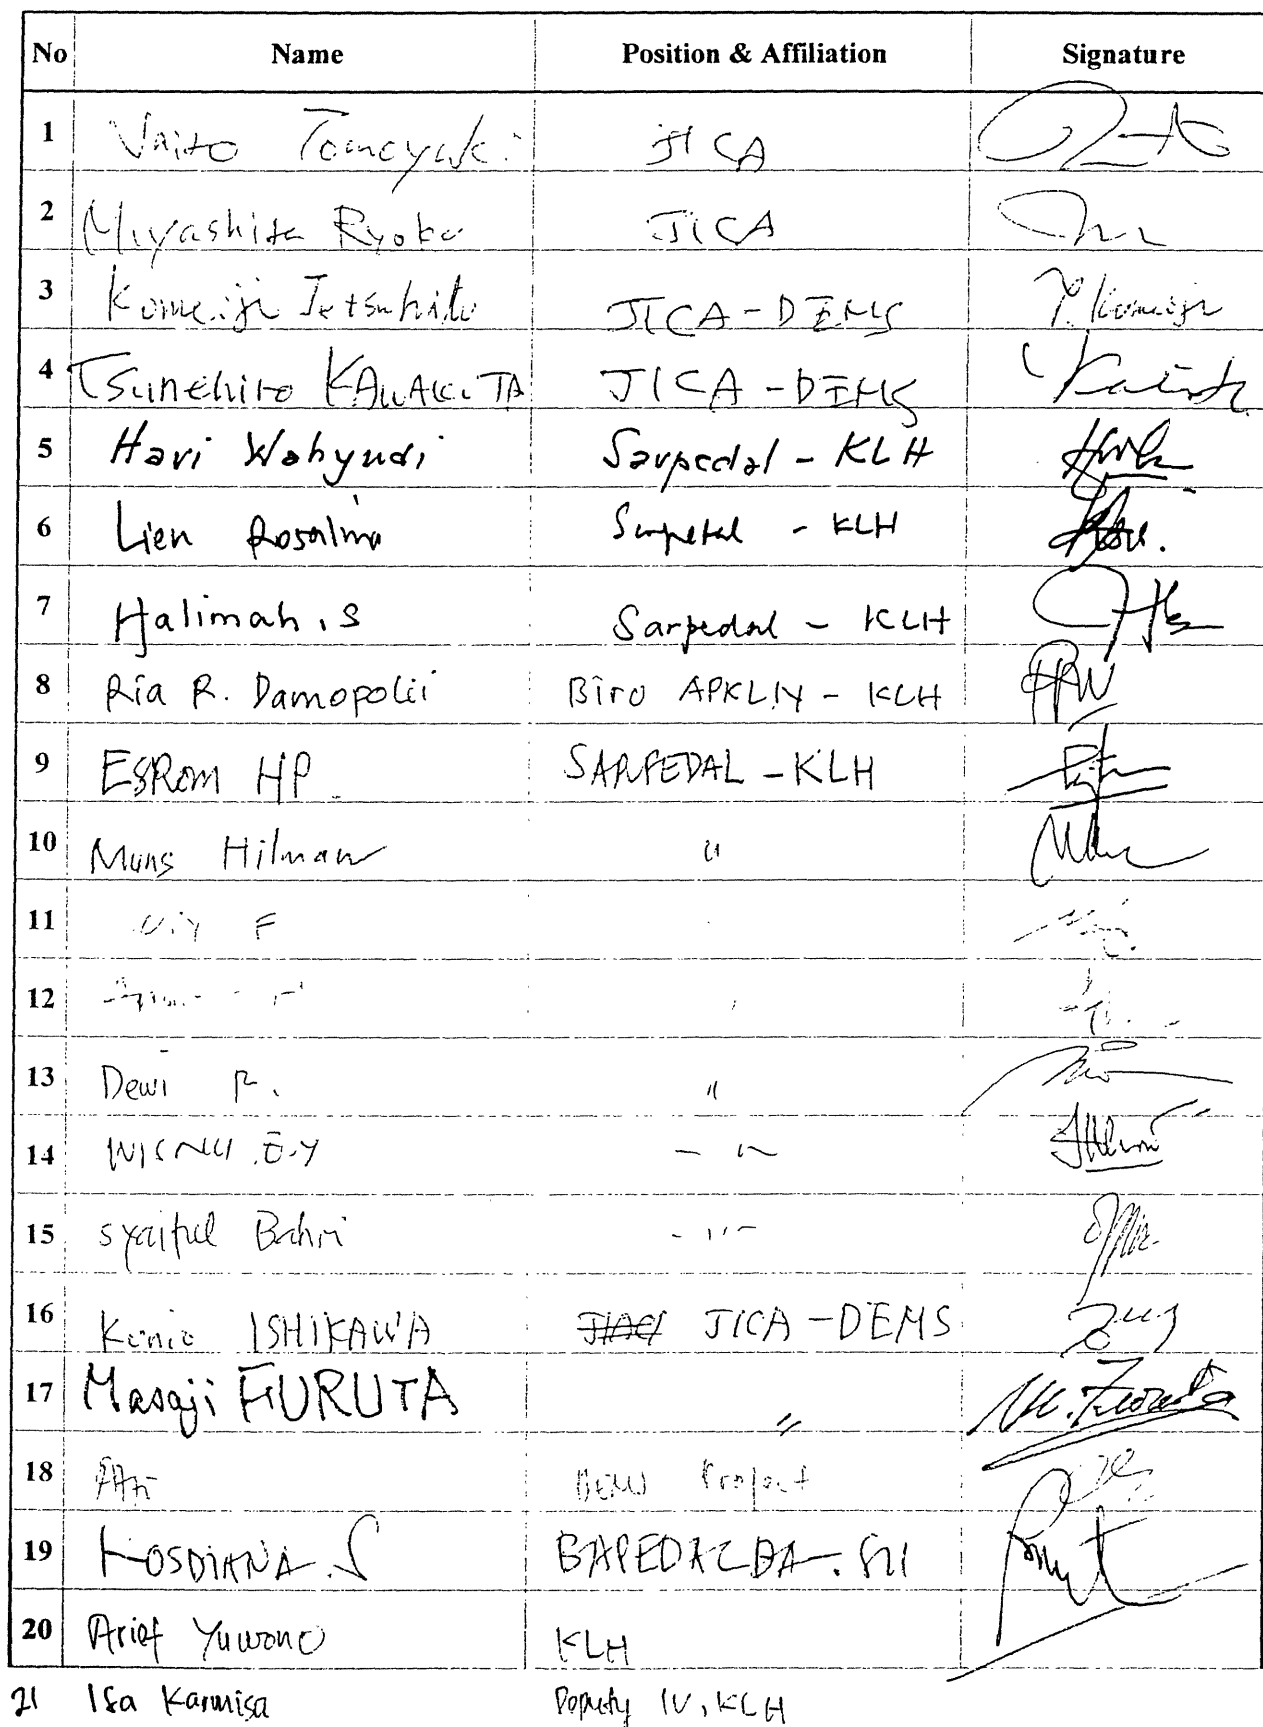 No Name Position & Affiliation Signature
1 Naito Tomoyuki JICA
2 Miyashita Ryoko JICA
3 Komeiji Tetsuhito JICA-DEMS Komeiji
4 Tsunehiro KAWAKITA JICA-DEMS
5 Hari Wahyudi Sarpedal - KLH
6 Lien Rosalina Sarpedal - KLH
7 Halimah . S Sarpedal - KLH
8 Ria R. Damopolii Biro APKLN - KLH
9 ESROM HP. SARPEDAL - KLH
10 Muns Hilman "
11 F
12
13 Dewi R. "
14 WISNU .E.Y - " -
15 Syaiful Bahri - " -
16 Kunio ISHIKAWA JICA-DEMS
17 Masaji FURUTA " M. Furuta
18 DEMS Project
19 ROSDIANA. S BAPEDALDA. SU
20 Arief Yuwono KLH
21 Isa Karmisa Deputy IV, KLH